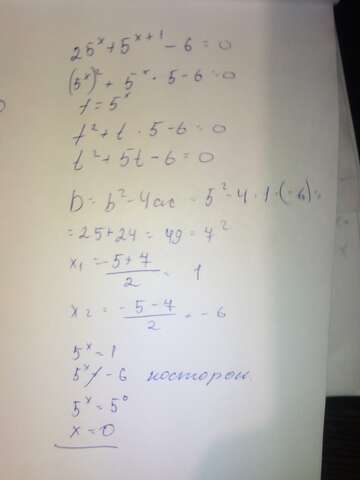 25^x + 5^{x+1} - 6 = 0
(5^x)^2 + 5^x · 5 - 6 = 0
t = 5^x
t^2 + t · 5 - 6 = 0
t^2 + 5t - 6 = 0
D = b^2 - 4ac = 5^2 - 4 · 1 · (-6) =
= 25 + 24 = 49 = 7^2
x_1 = \frac{-5+7}{2} = 1
x_2 = \frac{-5-7}{2} = -6
5^x = 1
5^x ≠ -6 посторон.
5^x = 5^0
x = 0